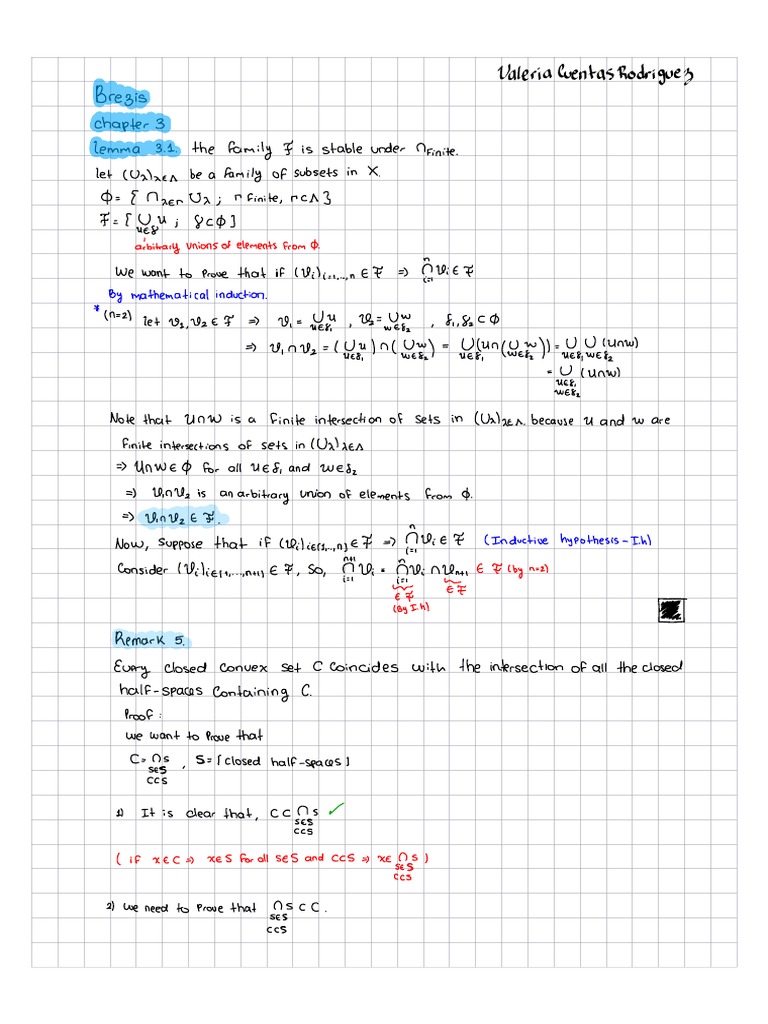 Valeria Cuentas Rodriguez
Brezis
chapter 3
lemma 3.1. the family F is stable under ∩Finite.
let (Uλ)λ∈Λ be a family of subsets in X.
Φ = { ∩λ∈Γ Uλ ; Γ finite, Γ⊂Λ }
F = { ∪u∈𝒢 u ; 𝒢⊂Φ }
arbitrary unions of elements from Φ.
We want to prove that if (Vi)i=1,...,n ∈ F ⇒ ∩ⁿi=1 Vi ∈ F
By mathematical induction.
* (n=2) let V1, V2 ∈ F ⇒ V1 = ∪u∈𝒢1 u , V2 = ∪w∈𝒢2 w , 𝒢1, 𝒢2 ⊂ Φ
⇒ V1 ∩ V2 = (∪u∈𝒢1 u) ∩ (∪w∈𝒢2 w) = ∪u∈𝒢1 (u∩(∪w∈𝒢2 w)) = ∪u∈𝒢1 ∪w∈𝒢2 (u∩w)
= ∪u∈𝒢1 w∈𝒢2 (u∩w)
Note that u∩w is a finite intersection of sets in (Uλ)λ∈Λ because u and w are
finite intersections of sets in (Uλ)λ∈Λ
⇒ u∩w ∈ Φ for all u∈𝒢1 and w∈𝒢2
⇒ V1∩V2 is an arbitrary union of elements from Φ.
⇒ V1∩V2 ∈ F.
Now, suppose that if (Vi)i∈{1,...,n} ∈ F ⇒ ∩ⁿi=1 Vi ∈ F (Inductive hypothesis - I.h)
Consider (Vi)i∈{1,...,n+1} ∈ F, so, ∩ⁿ⁺¹i=1 Vi = ∩ⁿi=1 Vi ∩ Vn+1 ∈ F (by n=2)
∈ F ∈ F
(By I.h)
Remark 5.
Every closed convex set C coincides with the intersection of all the closed
half-spaces containing C.
Proof:
we want to prove that
C = ∩ s∈S C⊂S s , S = {closed half-spaces}
1) It is clear that, C ⊂ ∩ s∈S C⊂S s ✓
( if x∈C ⇒ x∈S for all s∈S and C⊂S ⇒ x∈ ∩ s∈S C⊂S s )
2) we need to prove that ∩ s∈S C⊂S s ⊂ C.